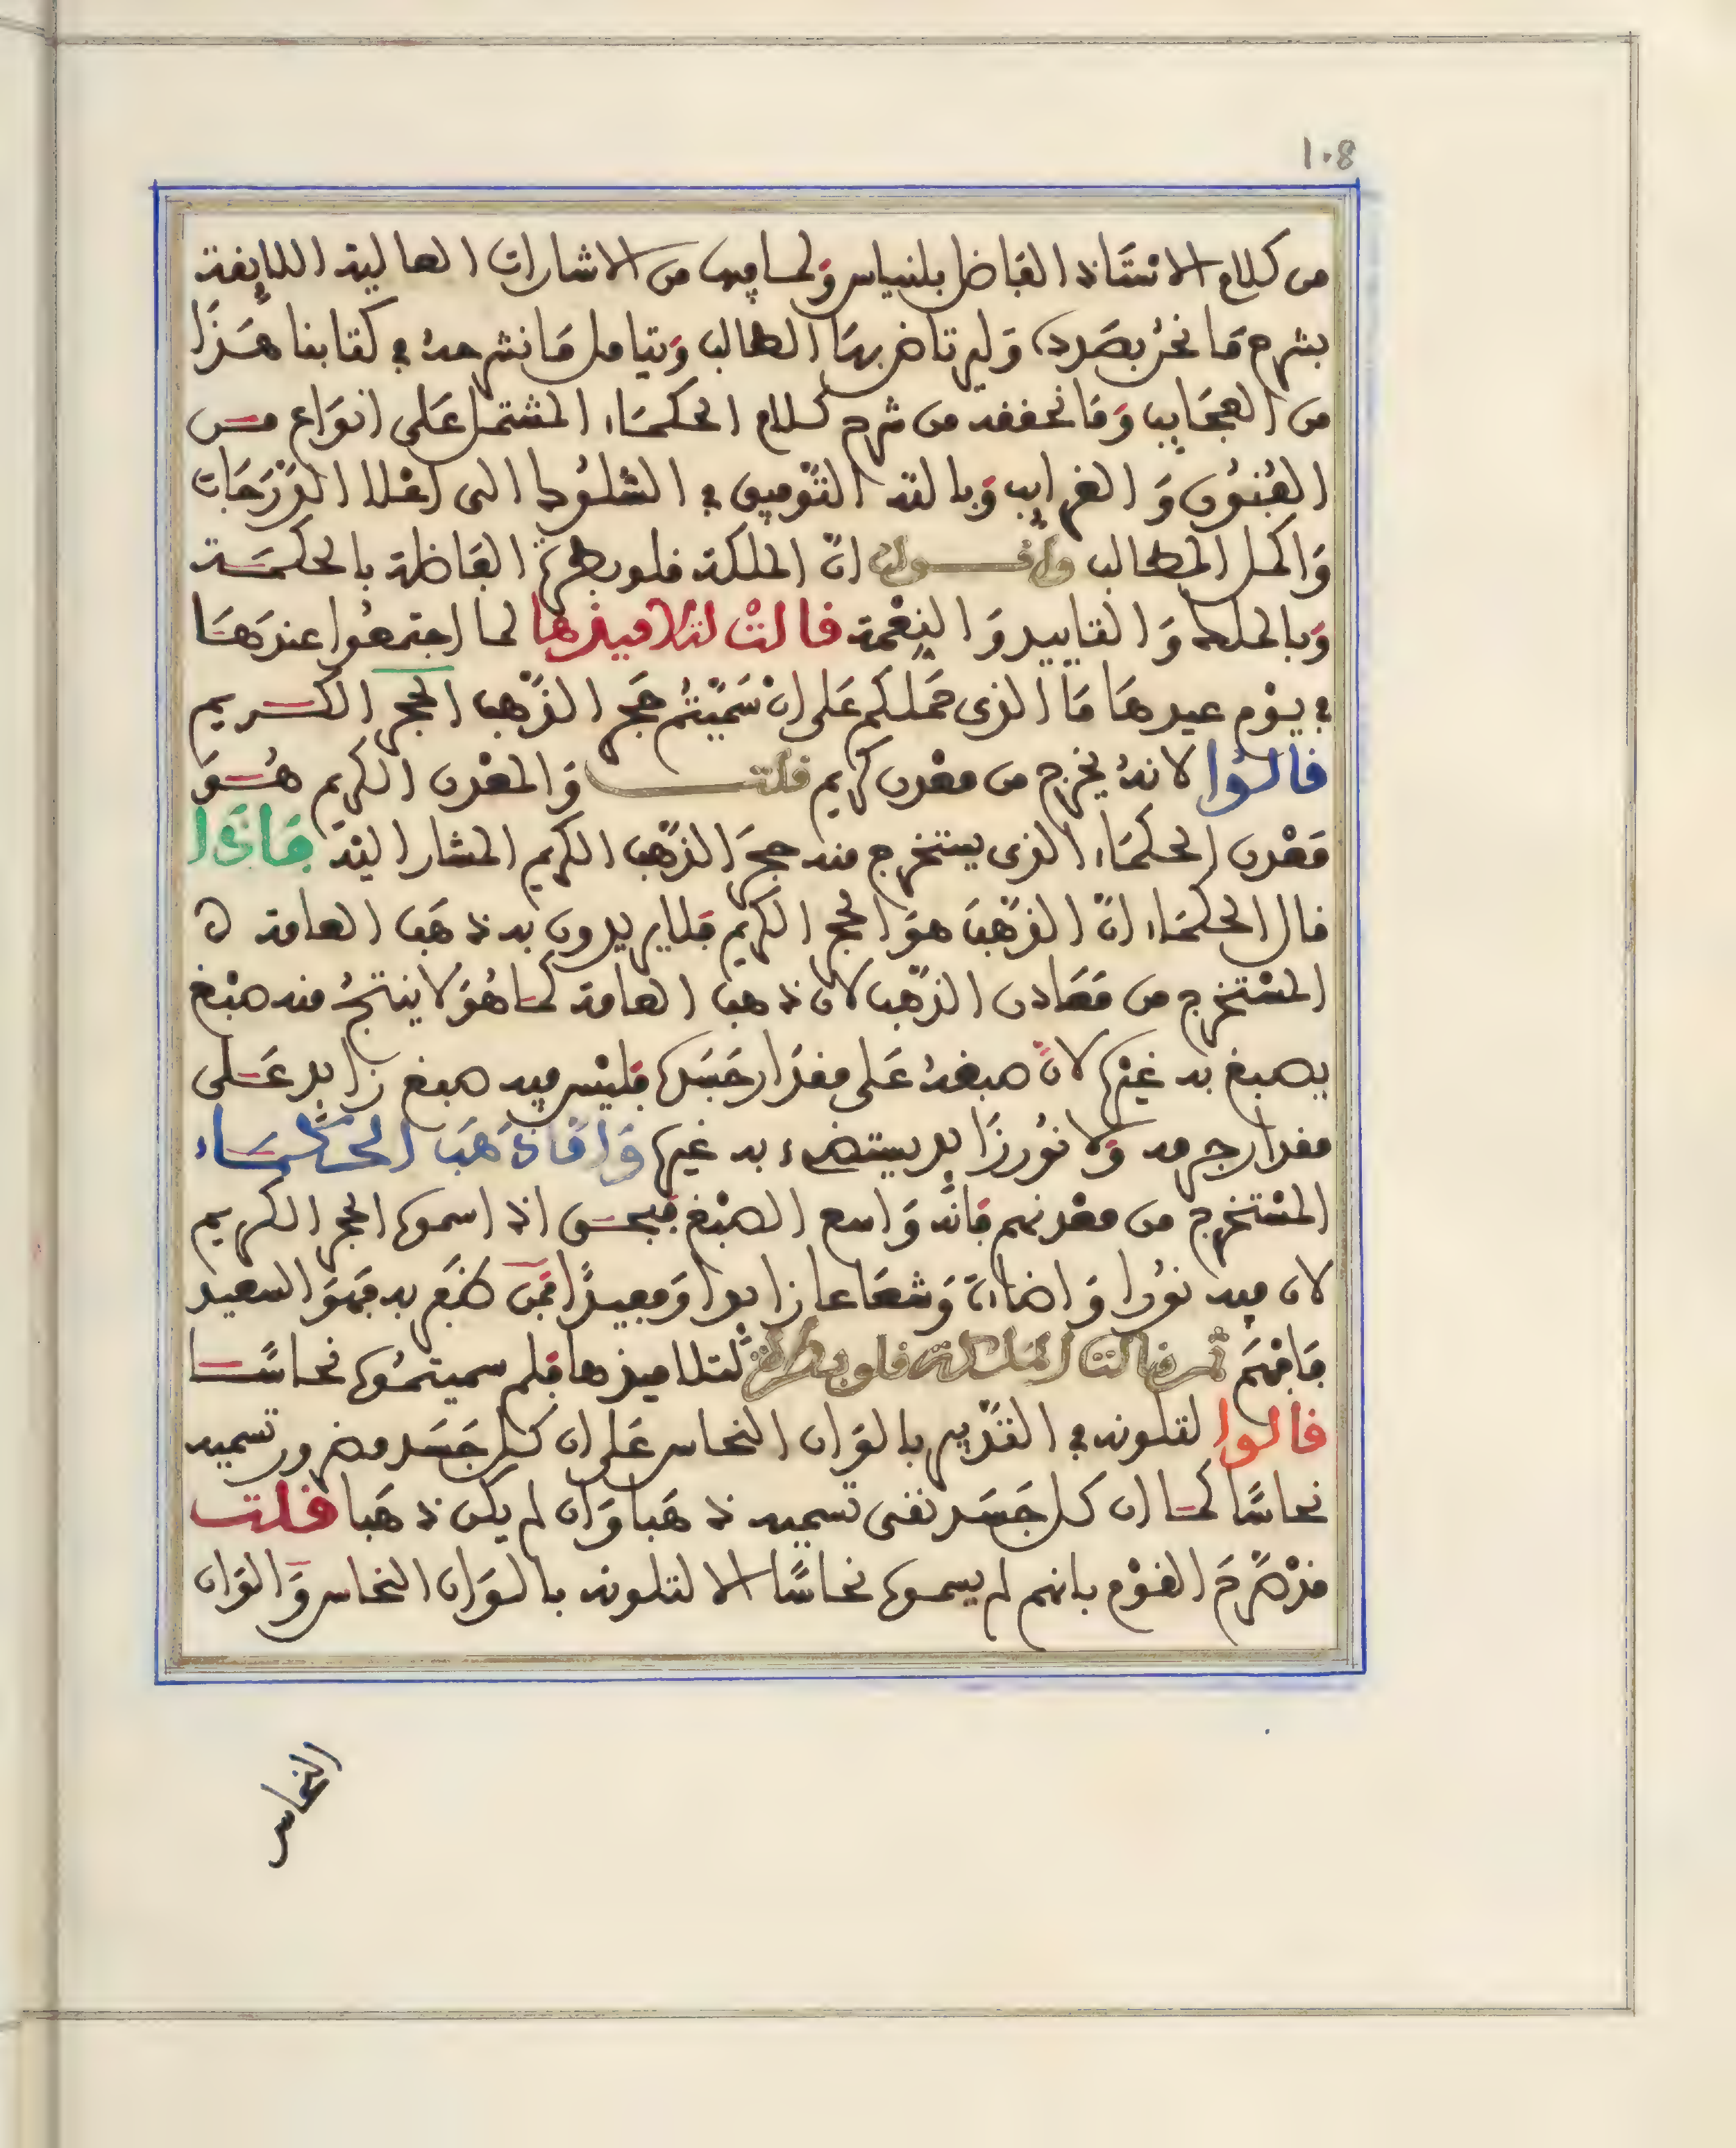 108
من كلام الاستاذ الفاضل بلنياس ولما فيها من الاشارات العالية اللايقة
بشرح ما نحن بصدده وليرتاض بها الطالب ويتامل ما نشرحه في كتابنا هذا
من العجايب وما نحققه من شرح كلام الحكماء المشتمل على انواع من
الفنون والغرايب وبالله التوفيق في السلوك الى اعلا الدرجات
واكمل المطالب واقول ان الملكة قلوبطرة الفاضلة بالحكمة
وبالملك والتاييد والنعمة قالت لتلاميذها لما اجتمعوا عندها
في يوم عيدها ما الذي حملكم على ان سميتم حجر الذهب الحجر الكريم
قالوا لانه يخرج من معدن كريم قلت والمعدن الكريم هو
معدن الحكماء الذي يستخرج منه حجر الذهب الكريم المشار اليه فاذا
قال الحكماء ان الذهب هو الحجر الكريم فلا يريدون به ذهب العامة
المستخرج من معادن الذهب لان ذهب العامة كما هو لا ينتج منه صبغ
يصبغ به غيره لان صبغه على مقدار جسده فليس فيه صبغ زايد على
مقدار جرمه ولا نور زايد يستضيء به غيره واما ذهب الحكماء
المستخرج من معدنهم فانه واسع الصبغ فبحق اذ اسموه الحجر الكريم
لان فيه نورا واضاءة وشعاعا زايدا ومفيدا فمن ظفر به فهو السعيد
فافهم ثم قالت الملكة قلوبطرة لتلاميذها فلم سميتموه نحاسا
قالوا لتلونه في التدبير بالوان النحاس على ان كل جسد مضرور تسميه
نحاسا كما ان كل جسد نقي تسميه ذهبا وان لم يكن ذهبا قلت
قد صرح القوم بانهم لم يسموه نحاسا الا لتلونه بالوان النحاس والوان
النحاس